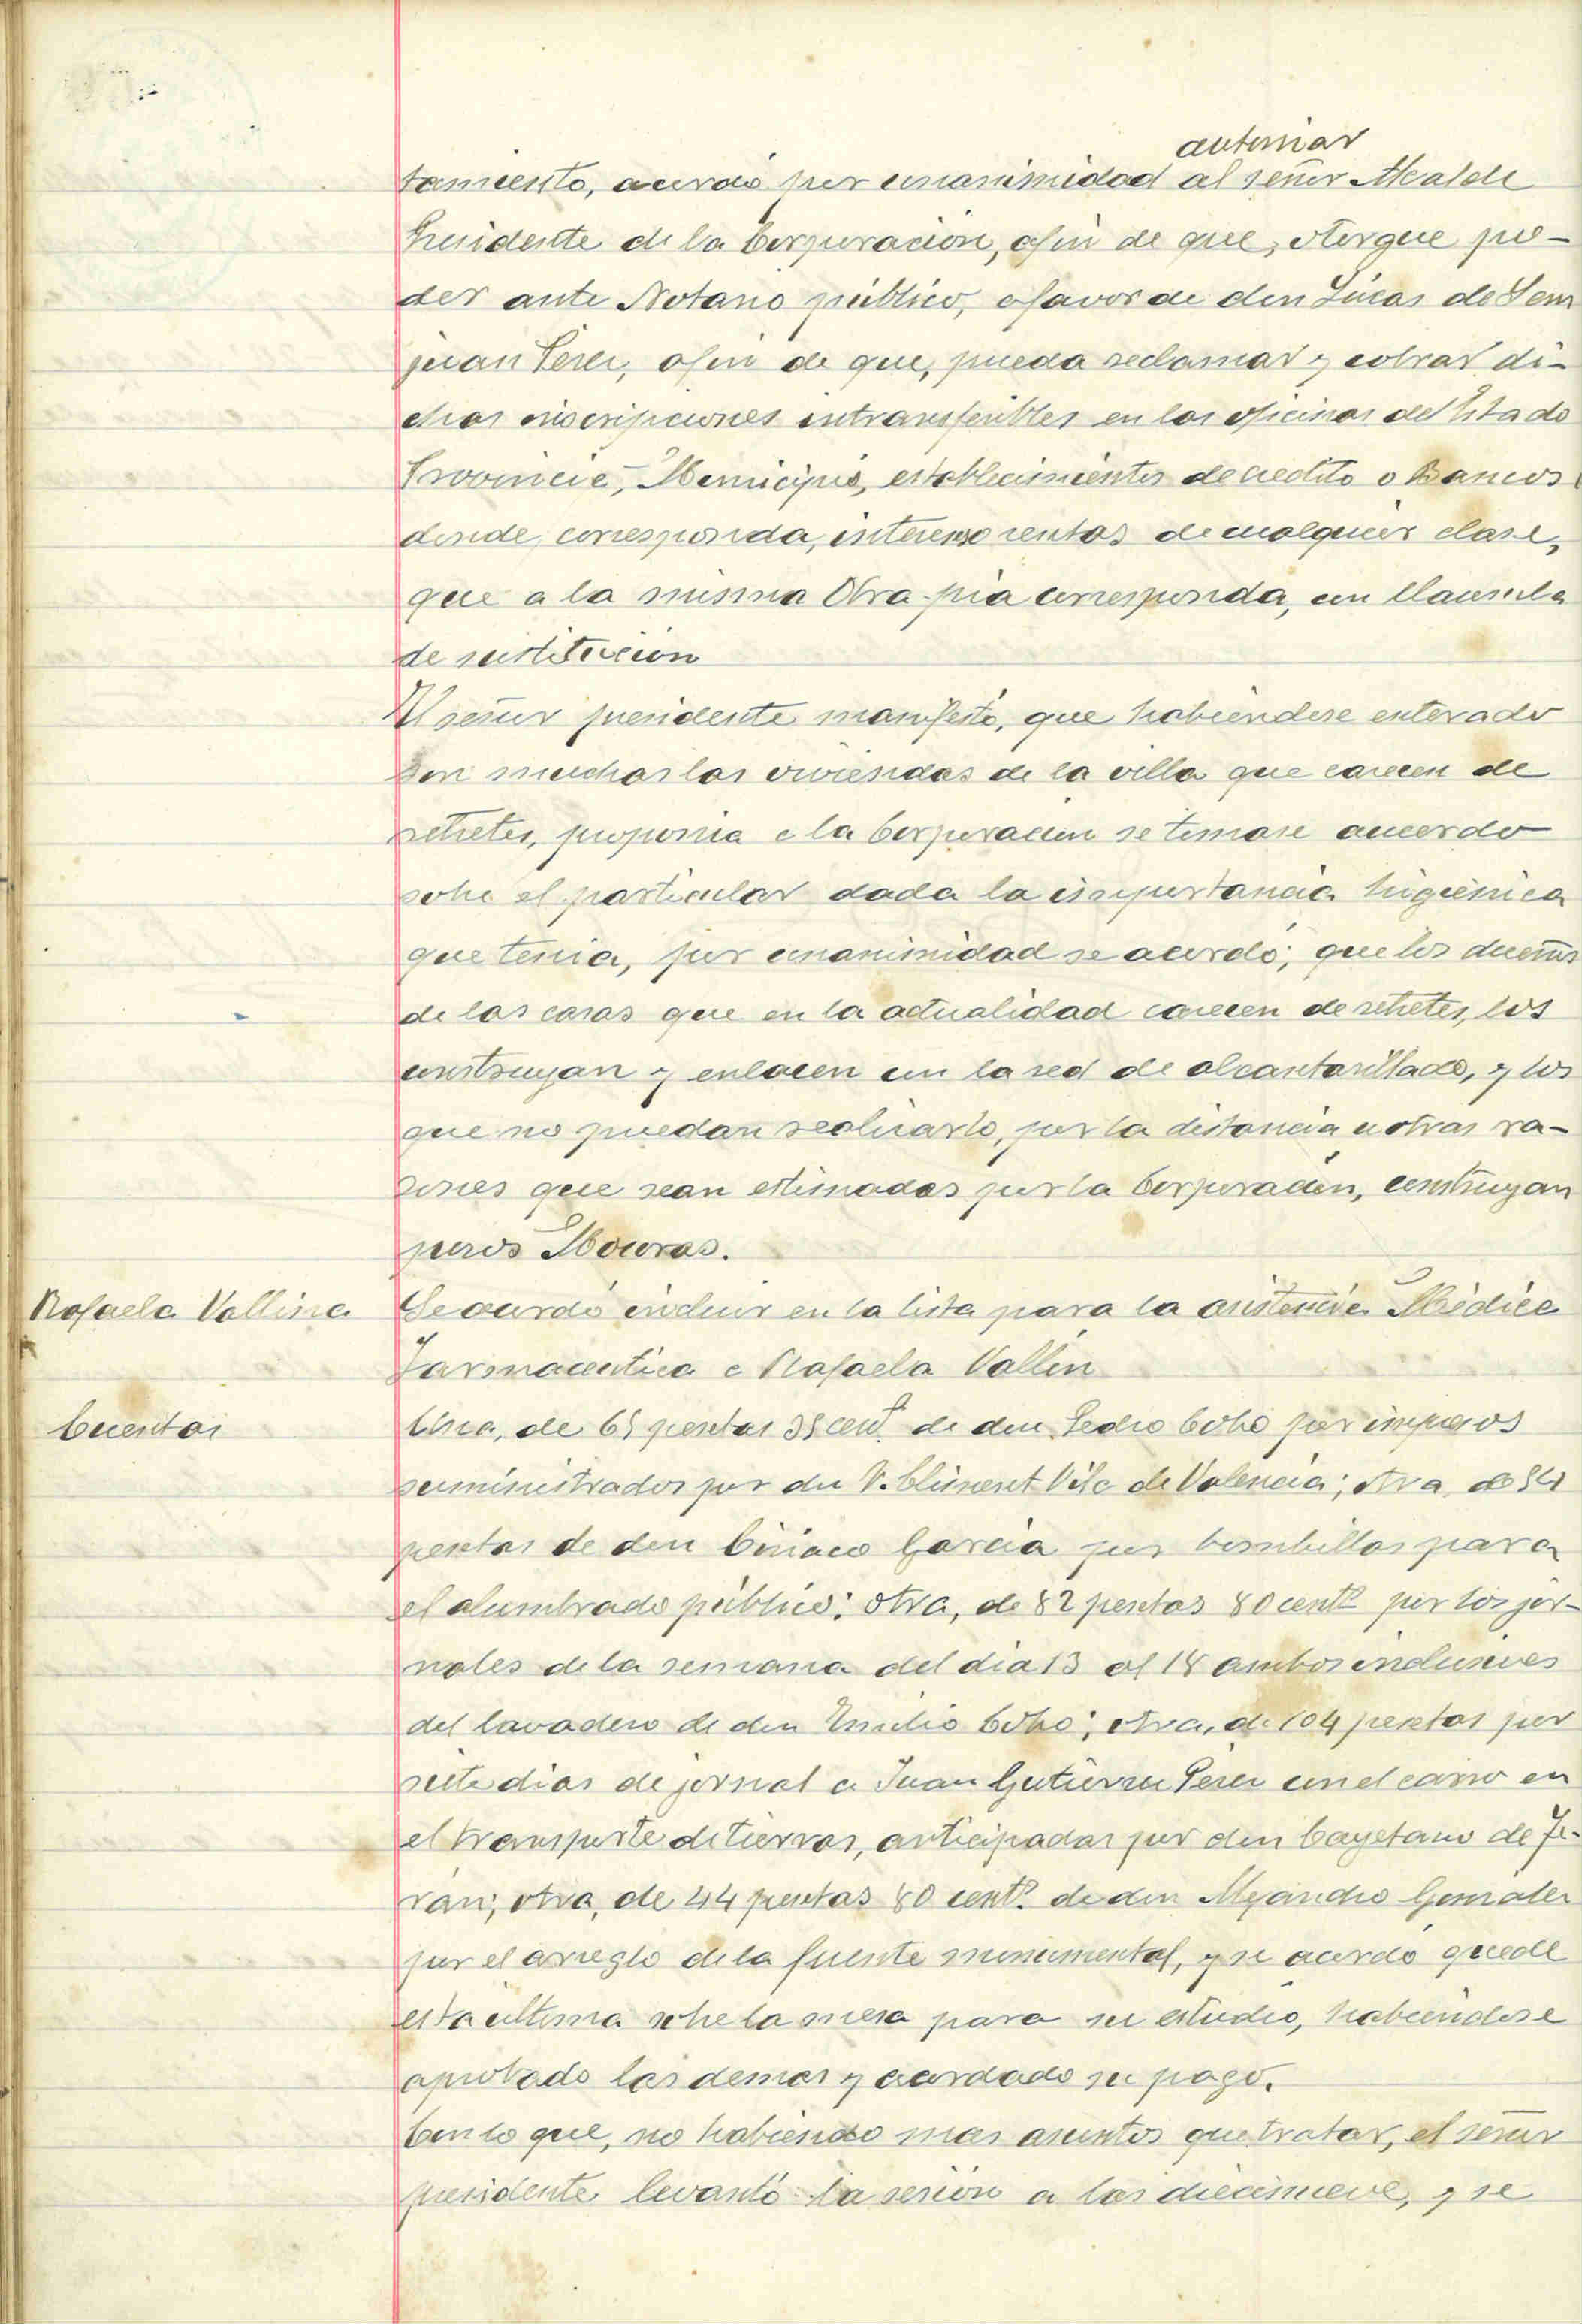 autorizar
tamiento, acordó por unanimidad al señor Alcalde
Presidente de la Corporación, afin de que, otorgue po-
der ante Notario público, a favor de don Lucas de San
juan Perez, afin de que, pueda reclamar y cobrar di-
chas inscripciones intransferibles en las oficinas del Estado
Provincia, Municipio, establecimientos de credito o Bancos
donde, corresponda, intereses o rentas de cualquier clase,
que a la misma Obra-pia corresponda, con clausula
de sustitución
El señor presidente manifestó, que habiendose enterado
son muchas las viviendas de la villa que carecen de
retretes, proponia a la Corporación se tomase acuerdo
sobre el particular dada la importancia higiénica
que tenia, por unanimidad se acordó; que los dueños
de las casas que en la actualidad carecen de retretes, los
construyan y enlacen con la red de alcantarillado, y los
que no puedan realizarlo, por la distancia u otras ra-
zones que sean estimadas por la Corporación, construyan
pozos Mouras.
Rafaela Vallina
Se acordó incluir en la lista para la asistencia Médica
Farmaceutica a Rafaela Vallin
Cuentas
Una, de 65 pesetas 35 cent. de don Pedro Cobo por
suministrados por don V. Climent Vila de Valencia; otra, de 84
pesetas de don Ciriaco Garcia por bombillas para
el alumbrado público; otra, de 82 pesetas 80 cents por los jor-
nales de la semana del dia 13 al 18 ambos inclusives
del lavadero de don Emilio Cobo; otra, de 104 pesetas por
siete dias de jornal a Juan Gutierrez Perez con el carro en
el transporte de tierras, anticipadas por don Cayetano de Te-
rán; otra, de 44 pesetas 80 cents. de don Alejandro Gonzalez
por el arreglo de la fuente monumental, y se acordó quede
esta ultima sobre la mesa para su estudio, habiendose
aprobado las demas y acordado su pago.
Con lo que, no habiendo mas asuntos que tratar, el señor
presidente levantó la sesión a las diecinueve, y se